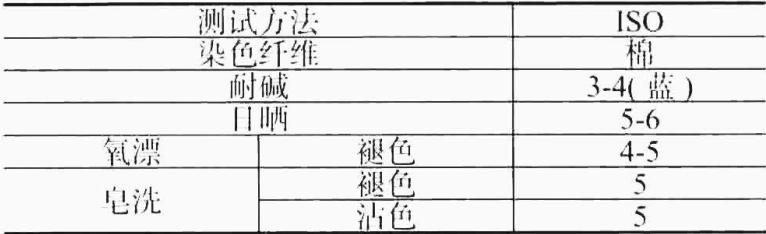 测试方法 ISO
染色纤维 棉
耐碱 3-4( 蓝 )
日晒 5-6
氧漂 褪色 4-5
皂洗 褪色 5
沾色 5